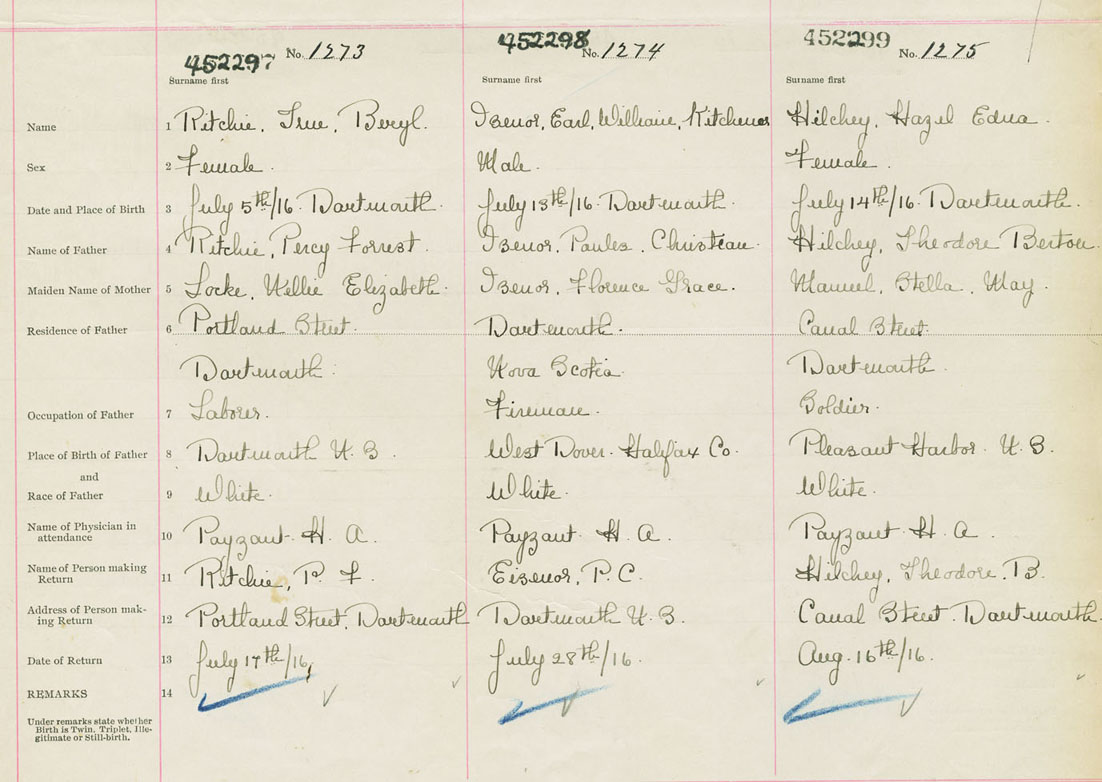 452297 No. 1273
452298 No. 1274
452299 No. 1275
Surname first Surname first Surname first
Name 1 Ritchie, Beryl. Isenor, Earl, William, Kitchener Hilchey, Hazel Edna.
Sex 2 Female. Male. Female.
Date and Place of Birth 3 July 5th/16. Dartmouth. July 13th/16. Dartmouth. July 14th/16. Dartmouth.
Name of Father 4 Ritchie, Percy Forrest. Isenor, Hilchey, Theodore Berton.
Maiden Name of Mother 5 Locke, Nellie Elizabeth. Isenor, Florence Grace. Manuel, Stella, May.
Residence of Father 6 Portland Street. Dartmouth. Canal Street.
Dartmouth. Nova Scotia. Dartmouth.
Occupation of Father 7 Laborer. Fireman. Soldier.
Place of Birth of Father 8 Dartmouth N. S. West Dover. Halifax Co. Pleasant Harbor. N. S.
and
Race of Father 9 White. White. White.
Name of Physician in
attendance 10 Payzant. H. A. Payzant. H. A. Payzant. H. A.
Name of Person making
Return 11 Ritchie, P. F. Eisenor, P. C. Hilchey, Theodore. B.
Address of Person mak-
ing Return 12 Portland Street, Dartmouth Dartmouth N. S. Canal Street. Dartmouth.
Date of Return 13 July 17th/16, July 28th/16. Aug. 16th/16.
REMARKS 14
Under remarks state whether
Birth is Twin, Triplet, Ille-
gitimate or Still-birth.